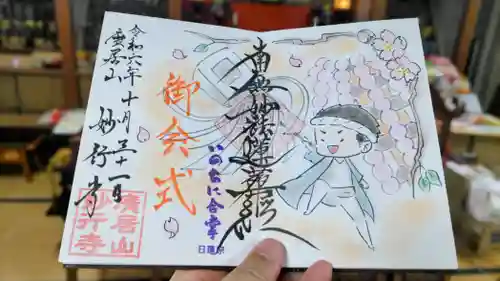 南無妙法蓮華経
いのちに合掌
日蓮宗
御会式
令和六年十月三十一日
廣居山
妙行寺
廣居山
妙行寺